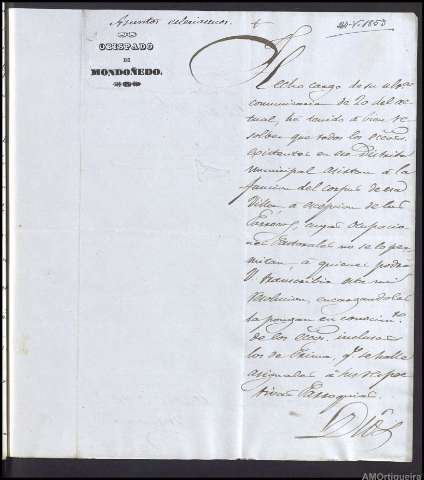 Asuntos eclesiasticos.
20-V-1853
OBISPADO
DE
MONDOÑEDO.
Hecho cargo de su aten.
comunicacion de 20 del ac
tual, hé tenido á bien re
solver que todos los ecco.s
existentes en ese Distrito
municipal asistan á la
funcion del corpus de esa
Villa, á escepcion de los
Parrocos, cuyas ocupacio
nes Pastorales no se lo per
mitan, á quienes podrá
V. transcribir esta mi
resolucion, encargandoles
la pongan en conocim.to
de los ecco.s, inclusos
los de Prima, q.e se hallen
asignados á sus respec
tivas Parroquias.
Dios
AMOrtigueira